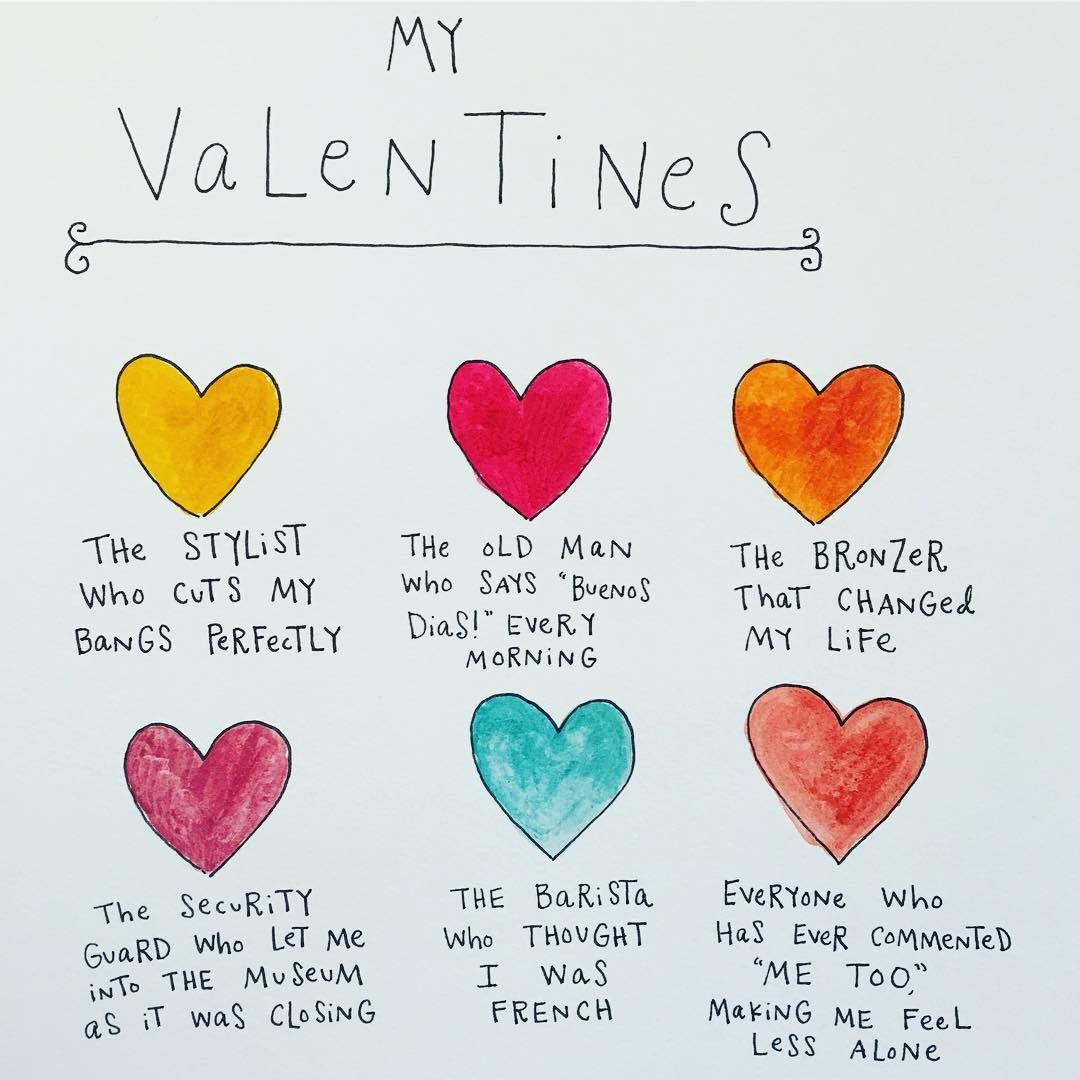 MY
VaLeNTiNeS
THe STYLiST
WHo CuTS MY
BaNGS PeRFecTLY
THe oLD MaN
WHo SAYS "BueNoS
DiaS!" EVeRY
MoRNiNG
THe BRoNZeR
THaT CHANGed
MY LiFe
The SecuRiTY
GuaRD WHo LeT Me
iNTo THE MuSeuM
aS iT WaS CLoSiNG
THE BaRiSTa
WHo THOUGHT
I WaS
FRENCH
EVeRYoNe WHo
HaS EVeR CoMMeNTeD
"ME TOO,"
MaKiNG ME FeeL
LeSS ALoNe